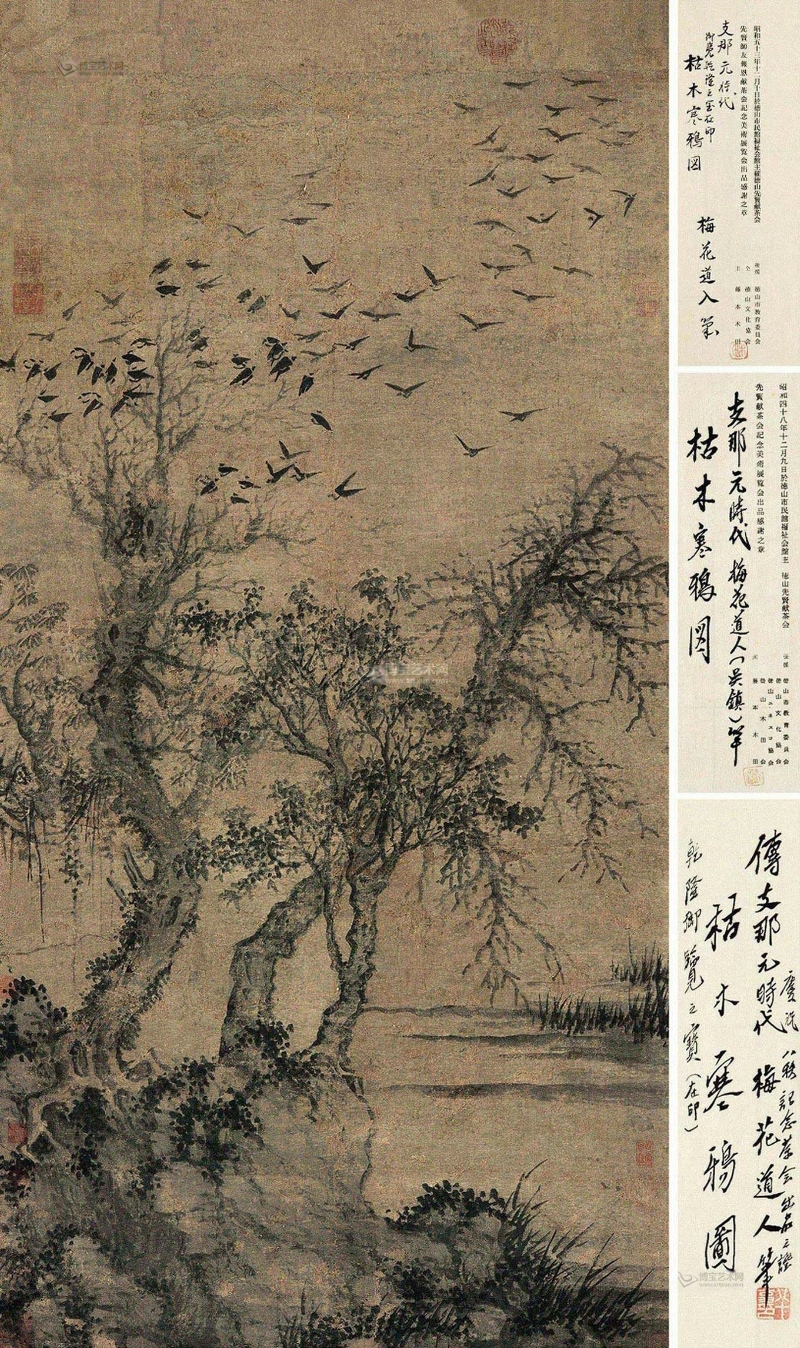 昭和五十三年十二月十日於徳山市民館福祉会館主催徳山先賢献茶会
先賢師友報恩献茶会記念美術展覧会出品感謝之章
支那元時代
御覧乾隆之宝在印
枯木寒鴉図
梅花道人筆
後援 徳山市教育委員会
仝 徳山文化協会
主 藤本木田
昭和四十八年十二月九日於徳山市民館福祉会館主 徳山先賢献茶会
先賢献茶会記念美術展覧会出品感謝之章
支那元時代 梅花道人(吴鎮)筆
枯木寒鴉図
後援 徳山市教育委員会
徳山文化協会
徳山ユネスコ協会
徳山木田会
藤本木田
記念茶会出品之證
傳支那元時代 梅花道人筆
枯木寒鴉圖
乾隆御覧之寶(在印)
博宝艺术网